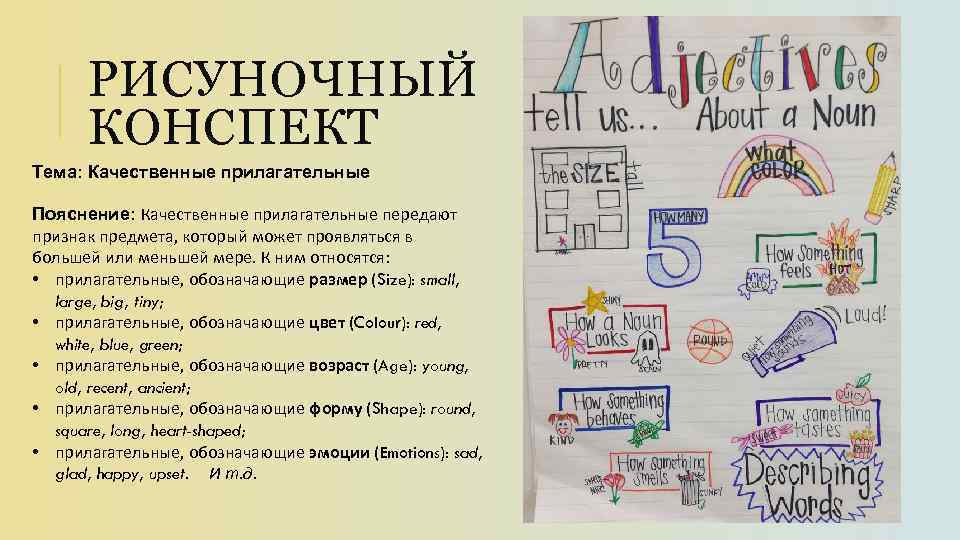 РИСУНОЧНЫЙ
КОНСПЕКТ
Тема: Качественные прилагательные
Пояснение: Качественные прилагательные передают
признак предмета, который может проявляться в
большей или меньшей мере. К ним относятся:
• прилагательные, обозначающие размер (Size): small,
large, big, tiny;
• прилагательные, обозначающие цвет (Colour): red,
white, blue, green;
• прилагательные, обозначающие возраст (Age): young,
old, recent, ancient;
• прилагательные, обозначающие форму (Shape): round,
square, long, heart-shaped;
• прилагательные, обозначающие эмоции (Emotions): sad,
glad, happy, upset. И т.д.
Adjectives
tell us... About a Noun
the SIZE
tall
small
what
COLOR
SHARP
HOW MANY
5
How Something
feels
HOT
COLD
SHINY
How a Noun
Looks
PRETTY
SCARY
ROUND
Quiet
How something
sounds
LOUD!
How something
behaves
KIND
JUICY
How something
tastes
sweet
How something
smells
SMELLS
NICE
STINKY
Describing
Words